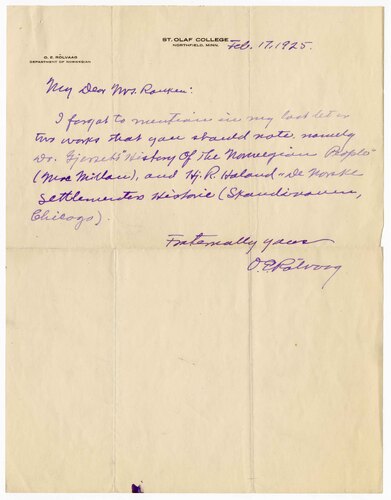 ST. OLAF COLLEGE
NORTHFIELD, MINN.
O. E. RÖLVAAG
DEPARTMENT OF NORWEGIAN
Feb. 17, 1925.
My Dear Mrs.
I forgot to mention in my last letter
two works that you should note, namely
Dr. Gjerset's "History Of The Norwegian People"
(Mac Millan), and H. R. Holand "De Norske
Settlementers Historie (Skandinaven,
Chicago).
Fraternally yours
O. E. Rölvaag